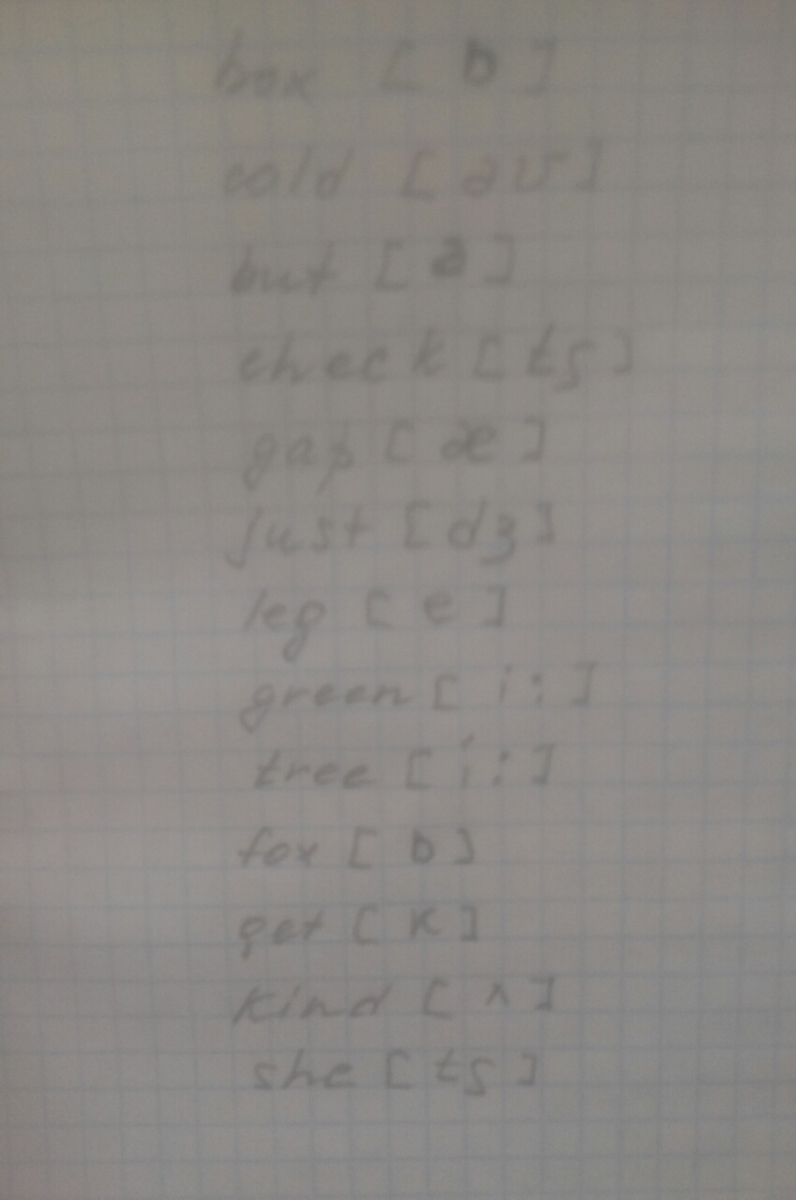 box [ɒ]
cold [əʊ]
but [ə]
check [tʃ]
gap [æ]
just [dʒ]
leg [e]
green [i:]
tree [i:]
fox [ɒ]
get [k]
kind [ʌ]
she [tʃ]